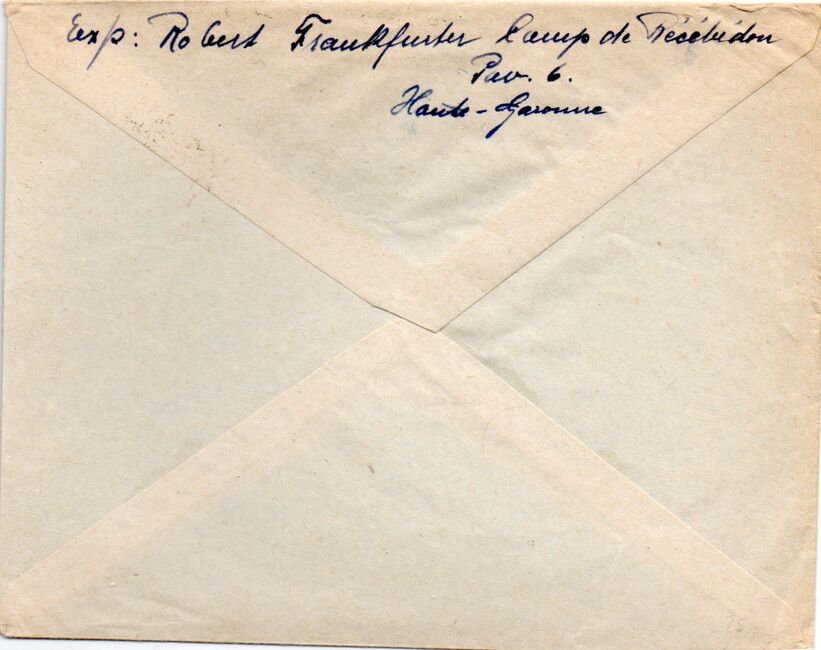 Exp: Robert Frankfurter Camp de Récébédou
Pav. 6.
Haute-Garonne
15